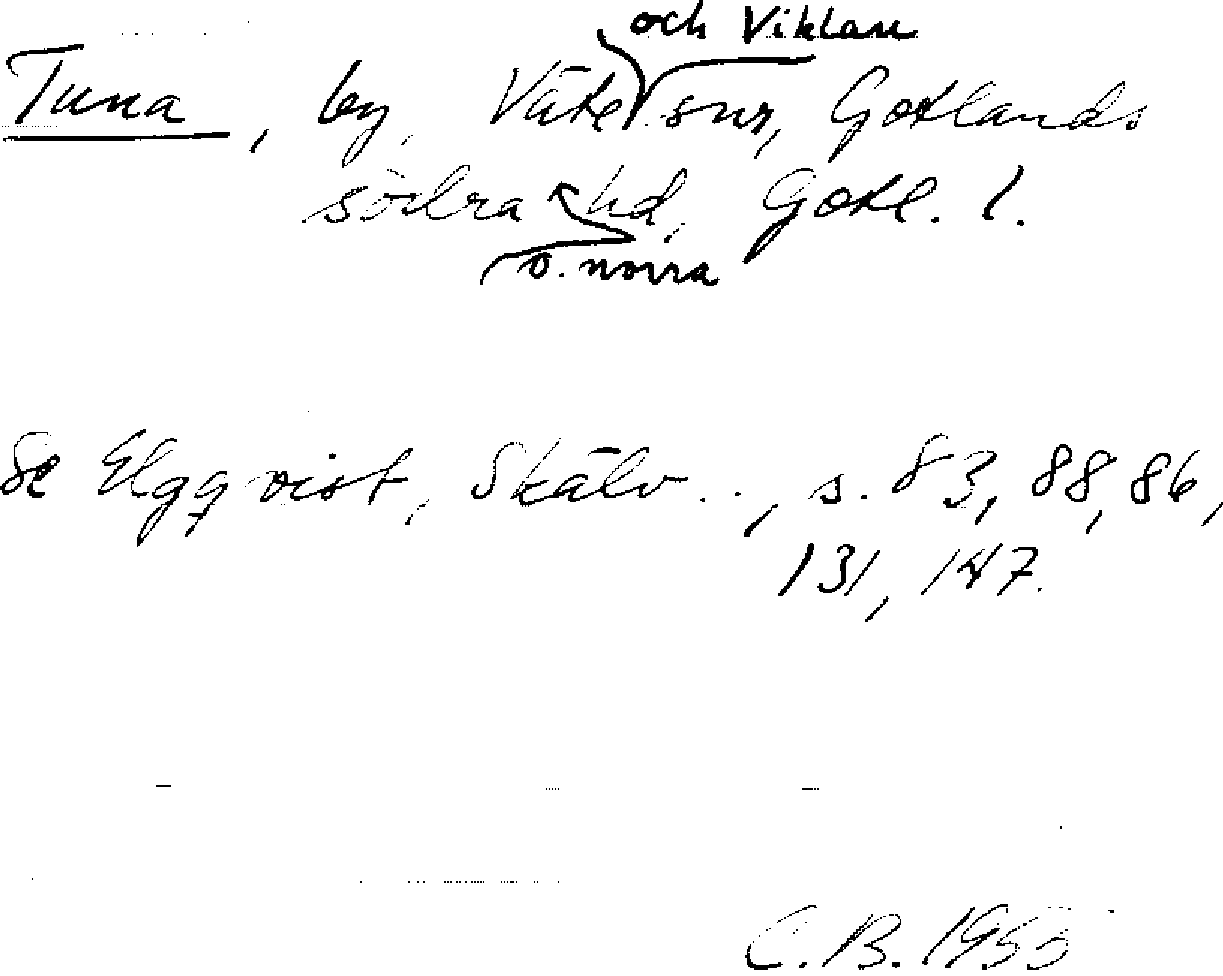 och Viklau
Tuna, by, Väte snr, Gotlands
södra hd, Gotl. l.
o. norra
Se Elgqvist, Skälv.., s. 83, 88, 86,
131, 147.
C.B. 1955